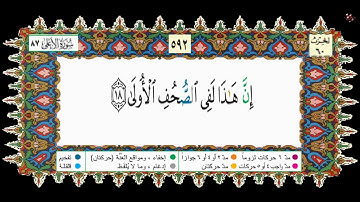 سُورَةُ الأَعْلَى ٨٧
٥٩٢
الجزء ٦٠
إِنَّ هَٰذَا لَفِى ٱلصُّحُفِ ٱلْأُولَىٰ ١٨
مدّ ٦ حركات لزوماً مدّ ٢ أو ٤ أو ٦ جوازاً إخفاء، ومواقع الغنّة (حركتان) تفخيم
مدّ واجب ٤ أو ٥ حركات مدّ حركتان إدغام، وما لا يُلفظ قلقلة